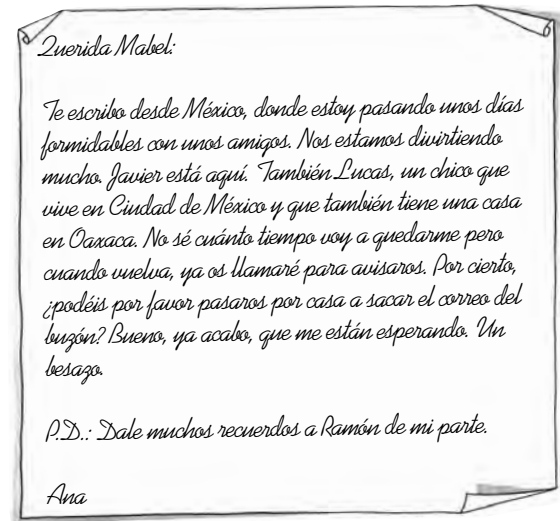 Querida Mabel:
Te escribo desde México, donde estoy pasando unos días
formidables con unos amigos. Nos estamos divirtiendo
mucho. Javier está aquí. También Lucas, un chico que
vive en Ciudad de México y que también tiene una casa
en Oaxaca. No sé cuánto tiempo voy a quedarme pero
cuando vuelva, ya os llamaré para avisaros. Por cierto,
¿podéis por favor pasaros por casa a sacar el correo del
buzón? Bueno, ya acabo, que me están esperando. Un
besazo.
P.D.: Dale muchos recuerdos a Ramón de mi parte.
Ana